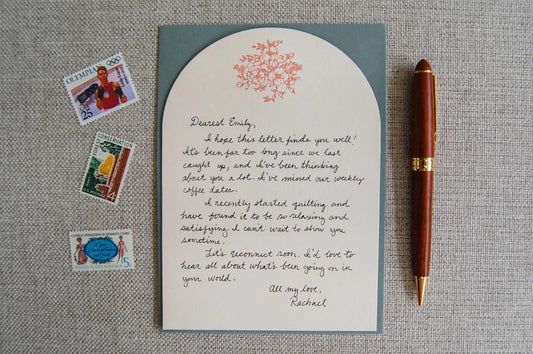 Dearest Emily,
I hope this letter finds you well!
It's been far too long since we last
caught up, and I've been thinking
about you a lot. I've missed our weekly
coffee dates.
I recently started quilting and
have found it to be so relaxing and
satisfying. I can't wait to show you
sometime.
Let's reconnect soon. I'd love to
hear all about what's been going on in
your world.
All my love,
Rachael
OLYMPIAN
25
CONSERVATION
4
5